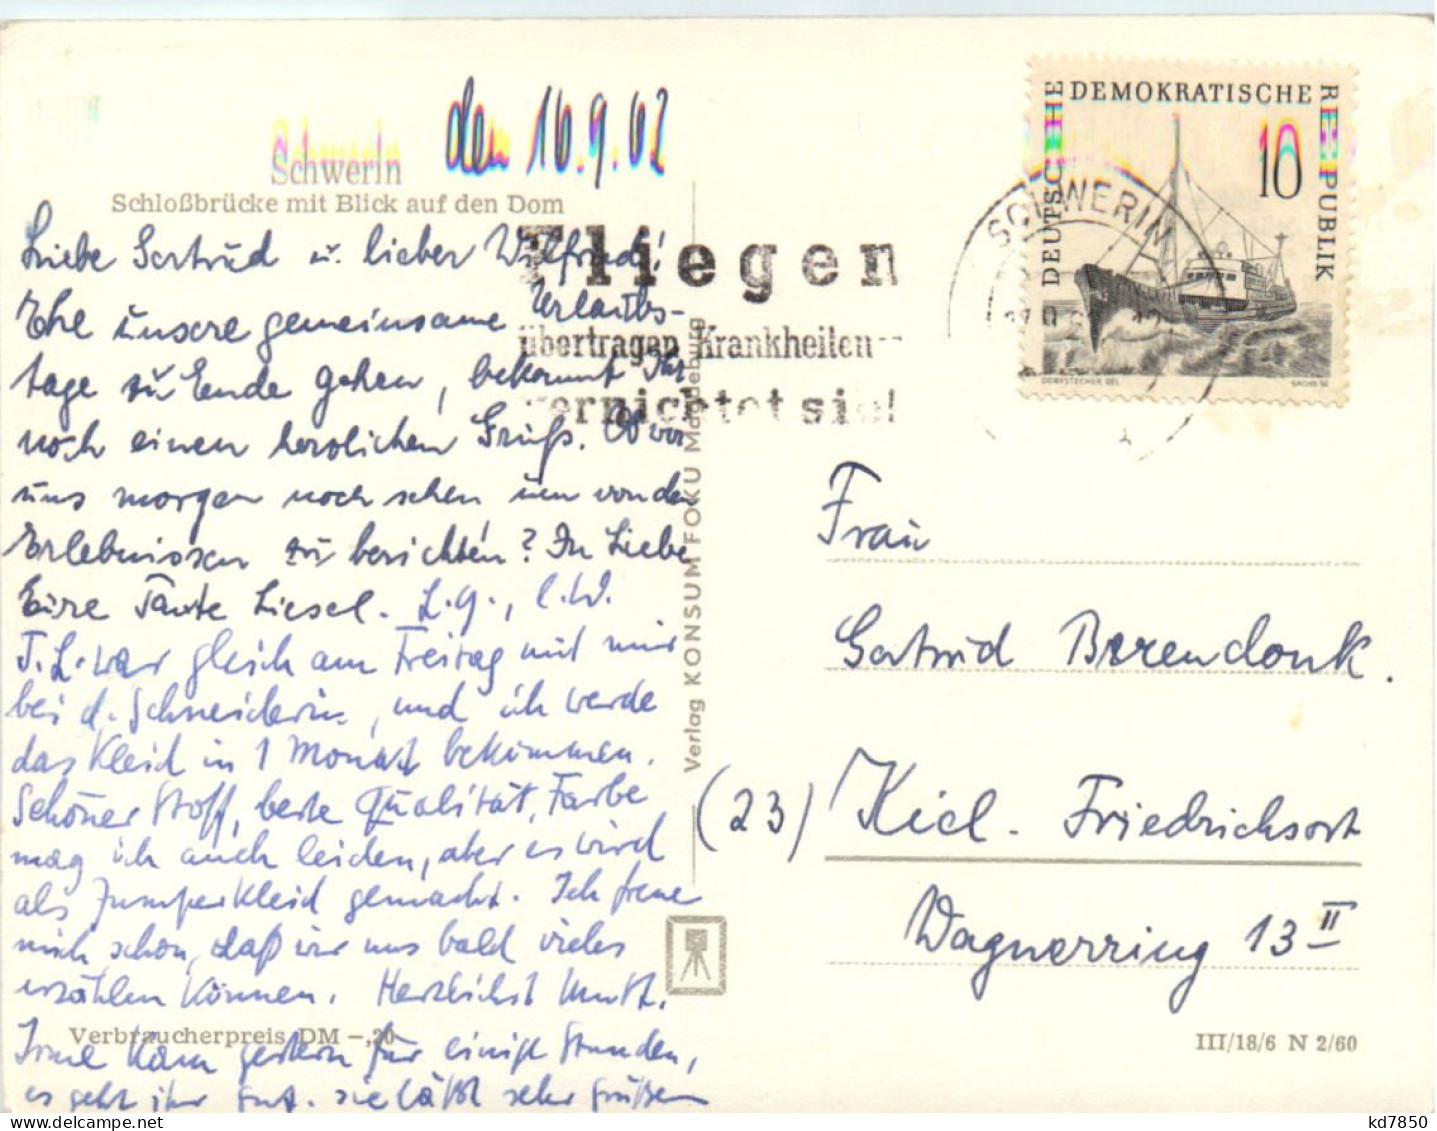 den 16.9.62
Schwerin
Schloßbrücke mit Blick auf den Dom
Liebe Gertrud u. lieber Wilfried!
Ehe unsere gemeinsame Urlaubs-
tage zu Ende gehen, bekommt Ihr
noch einen herzlichen Gruß. Ob wir
uns morgen noch sehen um von den
Erlebnissen zu berichten? In Liebe
Eure Tante Liesel. L.G., l.W.
T.L. war gleich am Freitag mit mir
bei d. Schneiderin, und ich werde
das Kleid in 1 Monat bekommen.
Schöner Stoff, beste Qualität, Farbe
mag ich auch leiden, aber es wird
als Jumperkleid gemacht. Ich freue
mich schon, daß wir uns bald vieles
erzählen können. Herzlichst Mutti.
Irme kam gestern für einige Stunden,
es geht ihr gut. sie läßt sehr grüßen
Verbraucherpreis DM -,20
Verlag KONSUM FOKU Magdeburg
Fliegen
übertragen Krankheiten
vernichtet sie!
SCHWERIN
DEUTSCHE DEMOKRATISCHE REPUBLIK
10
DORFSTECHER DEL.
SACHS SC.
Frau
Gertrud Berendonk.
(23) Kiel-Friedrichsort
Wagnerring 13 II
III/18/6 N 2/60
kd7850